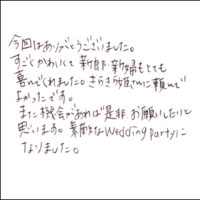 今回はありがとうございました。
すごくかわいくて 新郎新婦もとても
喜んでくれました。きらきら姫さんに頼んで
よかったです。
また機会があれば是非お願いしたいと
思います。素敵なwedding partyに
なりました。